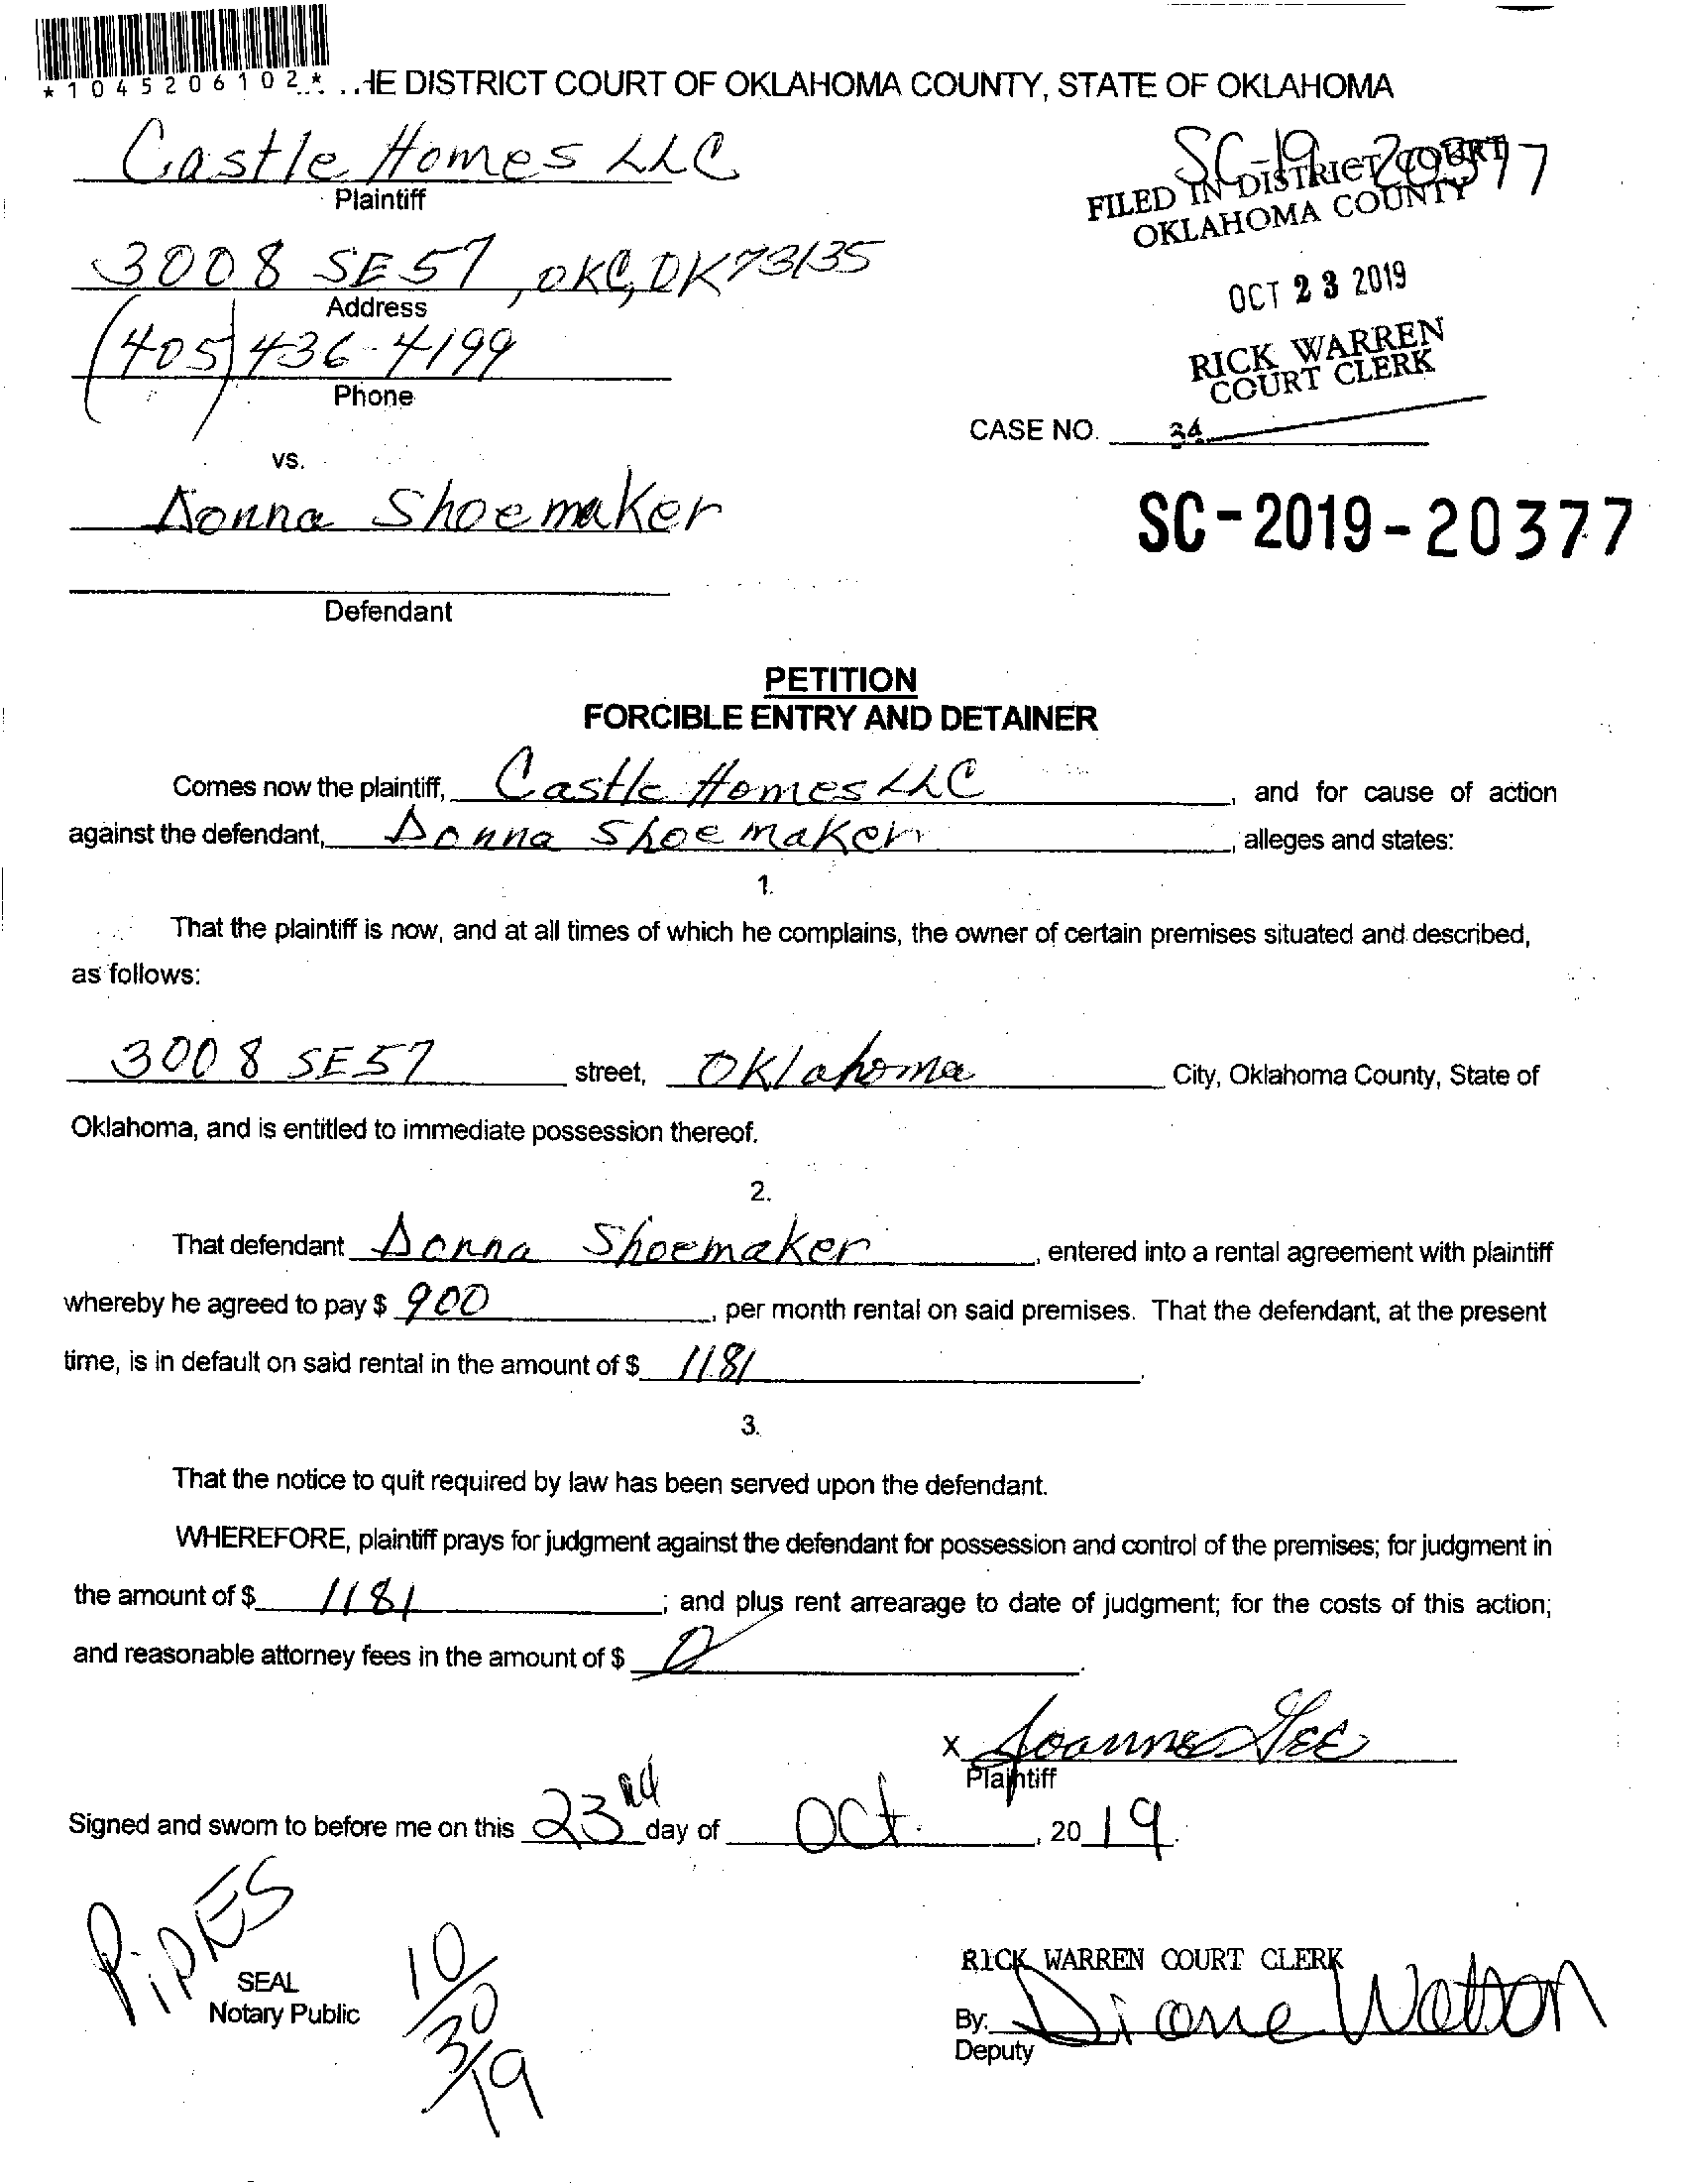 *1045206102*
HE DISTRICT COURT OF OKLAHOMA COUNTY, STATE OF OKLAHOMA
Castle Homes LLC
Plaintiff
SC-19-20377
FILED IN DISTRICT COURT
OKLAHOMA COUNTY
3008 SE 57, OKC, OK 73135
Address
OCT 23 2019
(405) 436-4199
Phone
RICK WARREN
COURT CLERK
CASE NO. 34
vs.
Donna Shoemaker
SC-2019-20377
Defendant
PETITION
FORCIBLE ENTRY AND DETAINER
Comes now the plaintiff, Castle Homes LLC, and for cause of action
against the defendant, Donna Shoemaker, alleges and states:
1.
That the plaintiff is now, and at all times of which he complains, the owner of certain premises situated and described,
as follows:
3008 SE 57 street, Oklahoma City, Oklahoma County, State of
Oklahoma, and is entitled to immediate possession thereof.
2.
That defendant Donna Shoemaker, entered into a rental agreement with plaintiff
whereby he agreed to pay $ 900, per month rental on said premises. That the defendant, at the present
time, is in default on said rental in the amount of $ 1181.
3.
That the notice to quit required by law has been served upon the defendant.
WHEREFORE, plaintiff prays for judgment against the defendant for possession and control of the premises; for judgment in
the amount of $ 1181; and plus rent arrearage to date of judgment; for the costs of this action;
and reasonable attorney fees in the amount of $ 0.
x Joanne Gee
Plaintiff
Signed and sworn to before me on this 23rd day of Oct., 2019.
PiPES
10/30/19
SEAL
Notary Public
RICK WARREN COURT CLERK
By: Diane Watton
Deputy